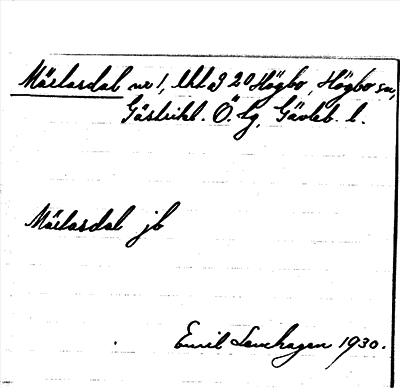 Mårlasdal nr 1, Uhl. å 20 Högbo, Högbo sn,
Gästrikl. Ö. tg, Gävleb. l.
Mårlasdal jb
Emil Lenhagen 1930.